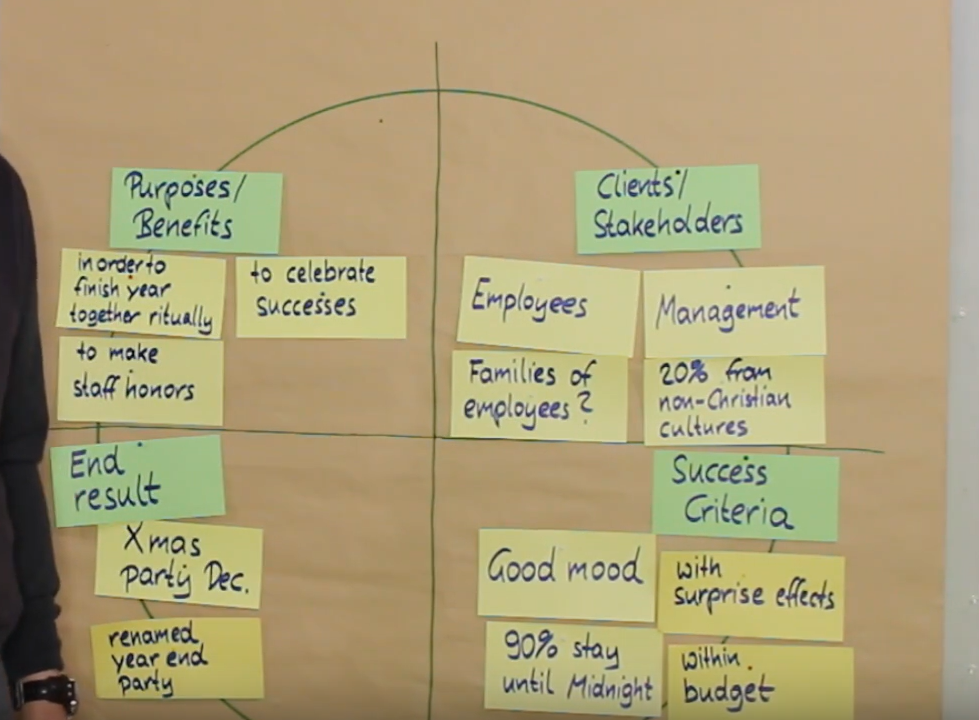 Purposes/
Benefits
in order to
finish year
together ritually
to celebrate
successes
to make
staff honors
Clients/
Stakeholders
Employees
Management
Families of
employees?
20% from
non-Christian
cultures
End
result
Xmas
party Dec.
renamed
year end
party
Success
Criteria
Good mood
with
surprise effects
90% stay
until Midnight
within
budget